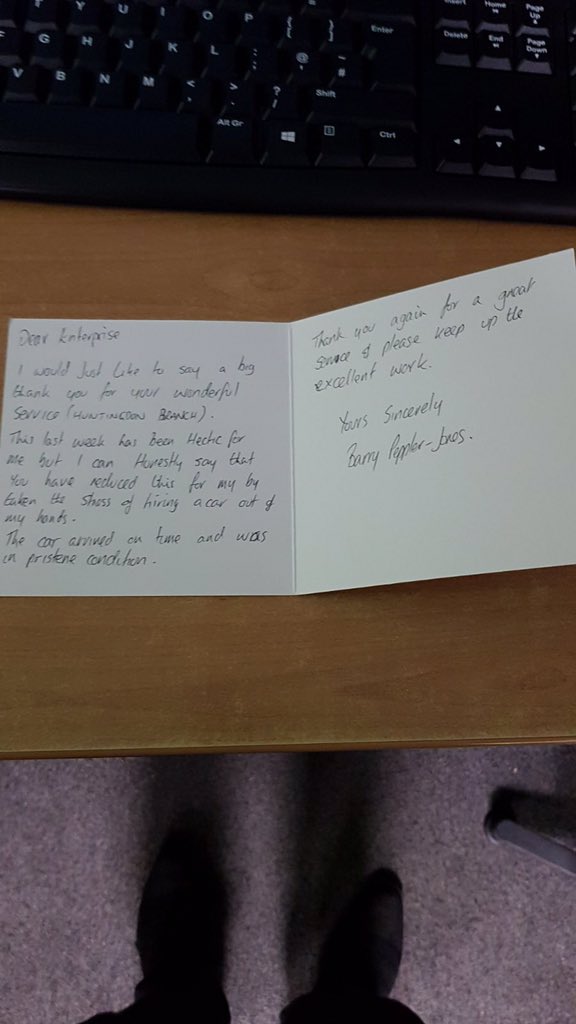 T Y U I O P { [ } ] Enter
Insert Home Page Up
F G H J K L : ; @ ' ~ #
Delete End Page Down
V B N M < , > . ? / Shift
Alt Gr Ctrl
Dear Enterprise
I would Just Like to say a big
thank you for your wonderful
Service (HUNTINGDON BRANCH).
This last week has been Hectic for
me but I can Honestly say that
you have reduced this for my by
taken the stress of hiring a car out of
my hands.
The car arrived on time and was
in pristene condition.
Thank you again for a great
service & please keep up the
excellent work.
Yours Sincerely
Barry Peppler-Jones.